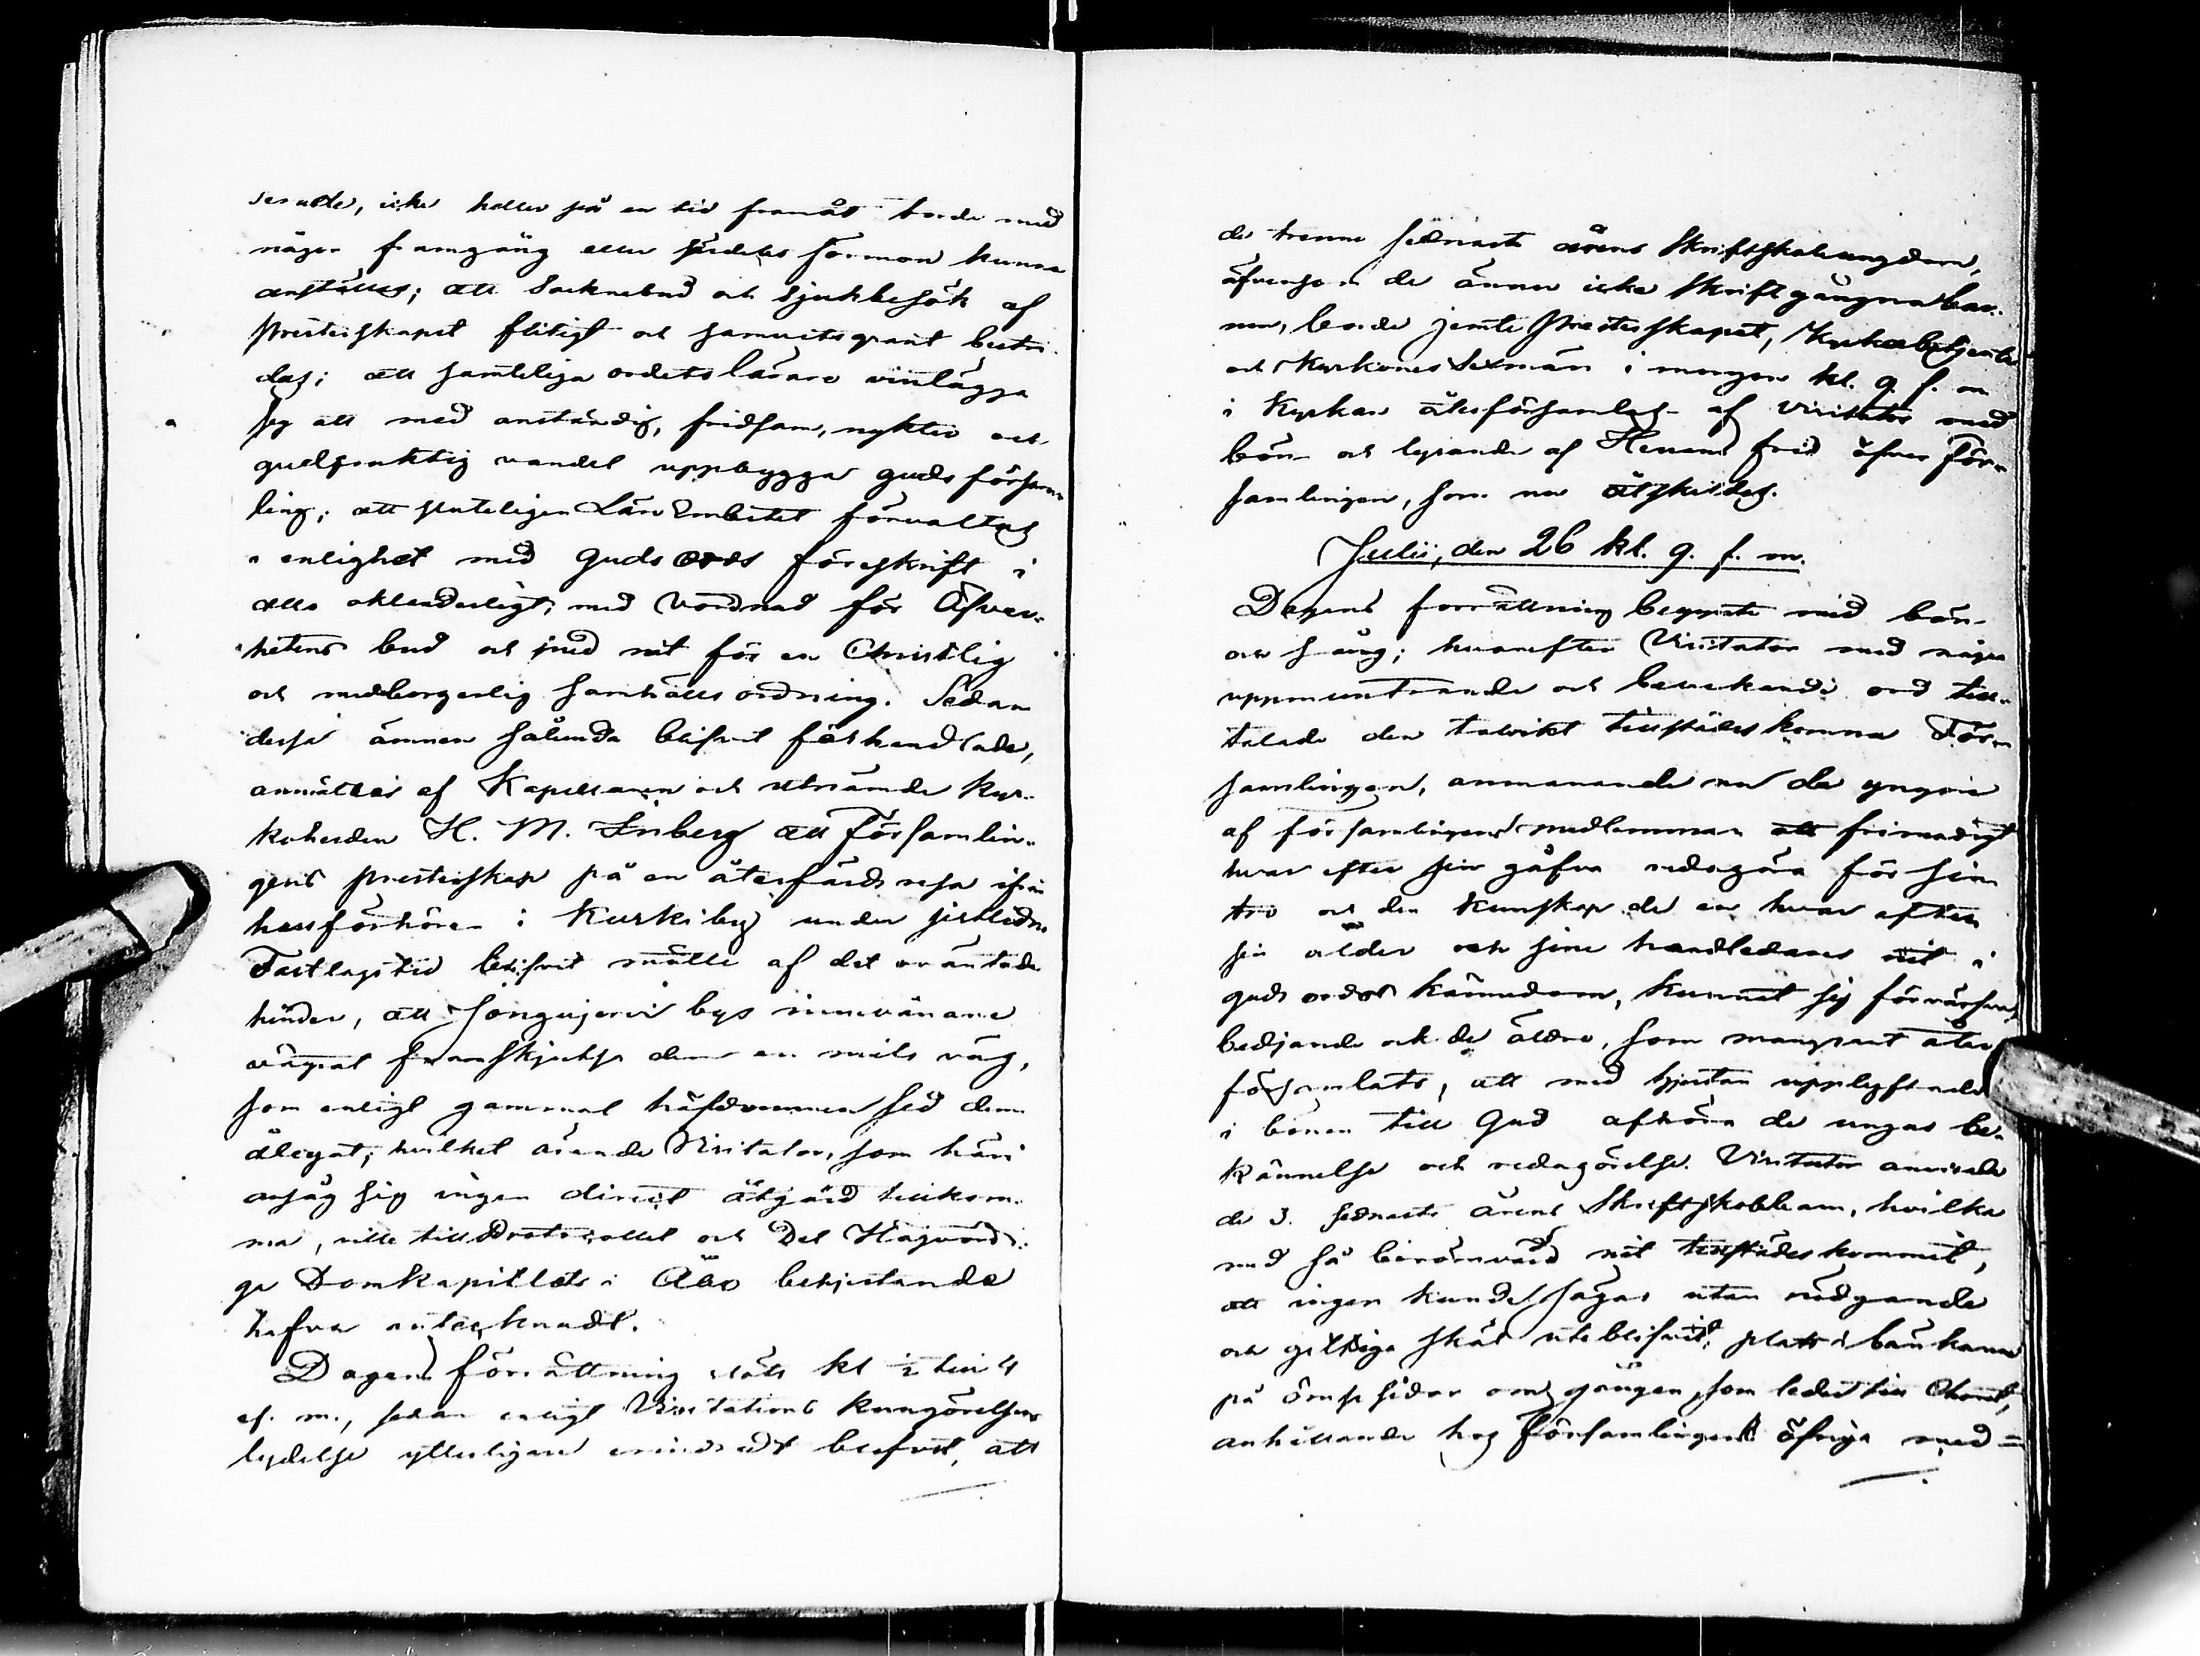 icke heller på en tid framåt borde med
någon framgång eller förmon kunna
anställas; att Socknebud och Sjukbesök af
Presterskapet flitigt och samvetsgrant bestri-
das; att samtelige ordets lärare vinlägga
sig att med anständig, fridsam, nykter och
gudfruktig vandel uppbygga guds försam-
ling; att sluteligen Läro Embetet förvaltas
i enlighet med Guds ords föreskrift i
allo oklanderligt; med vördnad för Öfver-
hetens bud och med nit för en Christlig
och medborgerlig samhälls ordning. Sedan
dessa ämnen sålunda blifvit förhandlade,
anmältes af Kapellanen och utnämde Kyr-
koherden H. M. att Församlin-
gens presterskap på en återfärds resa ifrån
husförhören i Kurkiby under sistledne
Fastlags tid blifvit mötte af det oväntade
hinder, att bys innevånare
vägrat framskjutsa dem en mils väg,
som enligt gammal häfdvunnen sed dem
ålegat; hvilket ärende Visitator, som häri
ansåg sig ingen direct åtgärd tillkom-
ma, ville till Protocollet och Det Högvördi-
ga Domkapitlets i Åbo bepröfvande
hafva antecknadt.
Dagens förrättning slöts kl ½ till 4
ef. m., sedan enligt Visitations kungörelsens
lydelse ytterligare erindradt blifvit, att
de trenne sednaste årens Skriftskoleungdom,
äfvensom de ännu icke Skriftgångna bar-
nen, borde jemte Presterskapet, Kyrkobetjente
och Kyrkones Sexmän i morgon kl. 9 f. m
i Kyrkan återförsamlas af Visitator med
bön och lysande af Herrans frid öfver För-
samlingen, som nu åtskildes.
Julii, den 26 kl. 9. f. m.
Dagens förrättning begynte med bön
och sång; hvarefter Visitator med några
uppmuntrande och beveкande ord till-
talade den talrikt tillstädes komna För-
samlingen, anmanande nu de yngre
af församlingens medlemmar att frimodigt
hvar efter sin gåfva redogöra för sin
tro och den kunskap de en hvar efter
sin ålder och sine handledares nit i
guds ords kännedom, kunnat sig förvärfva,
bedjande ock de äldre, som mangrant åter
församlats, att med hjertan upplyftade
i bönen till Gud afhöra de ungas be-
kännelse och redogörelse. Visitator anvisade
de 3. sednaste årens Skriftskolebarn, hvilka
med så berömvärd nit tillstädeskommit,
att ingen kunde sägas utan nödgande
och giltiga skäl uteblifvit, plats i bänkarne
på ömse sidor om gången, som leder till Choret,
anhållande hos församlingens öfriga med=